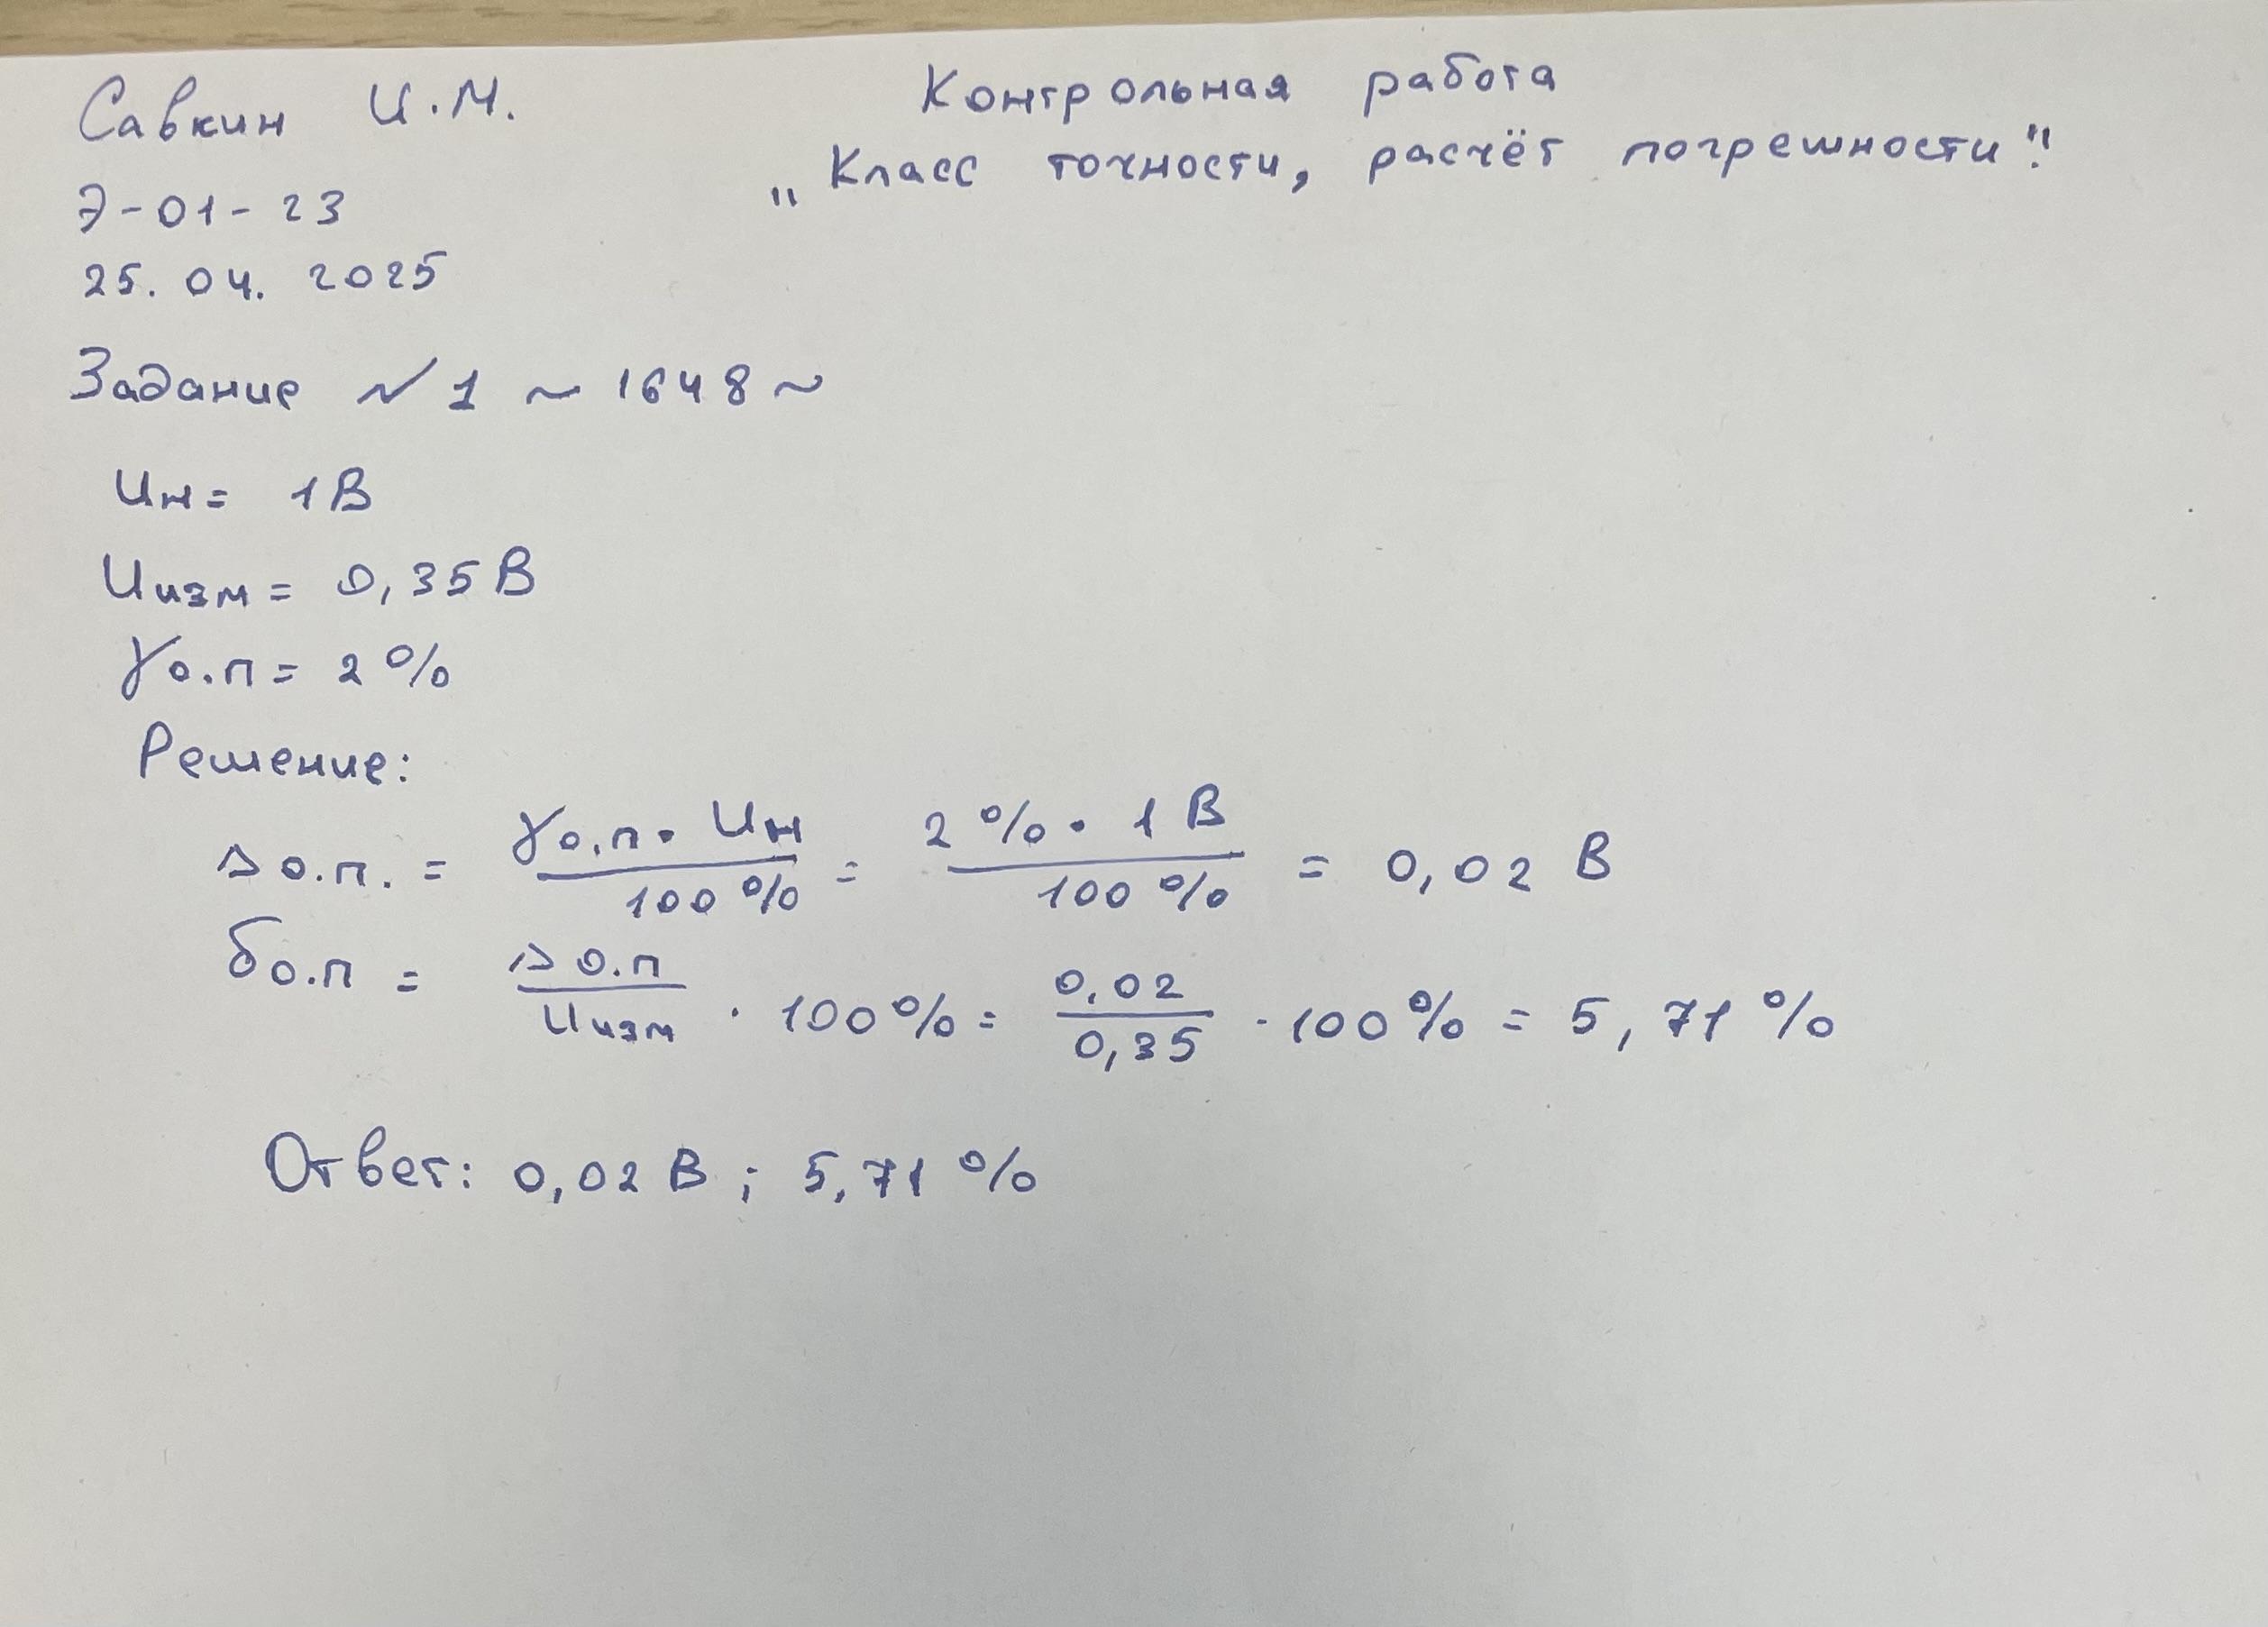 Савкин И.М.
Контрольная работа
„Класс точности, расчёт погрешности".
Э-01-23
25.04.2025
Задание № 1 ~ 1648 ~
Uн = 1 В
Uизм = 0,35 В
γо.п = 2 %
Решение:
Δо.п. = γо.п · Uн / 100 % = 2 % · 1 В / 100 % = 0,02 В
δо.п = Δо.п / Uизм · 100 % = 0,02 / 0,35 · 100 % = 5,71 %
Ответ: 0,02 В ; 5,71 %